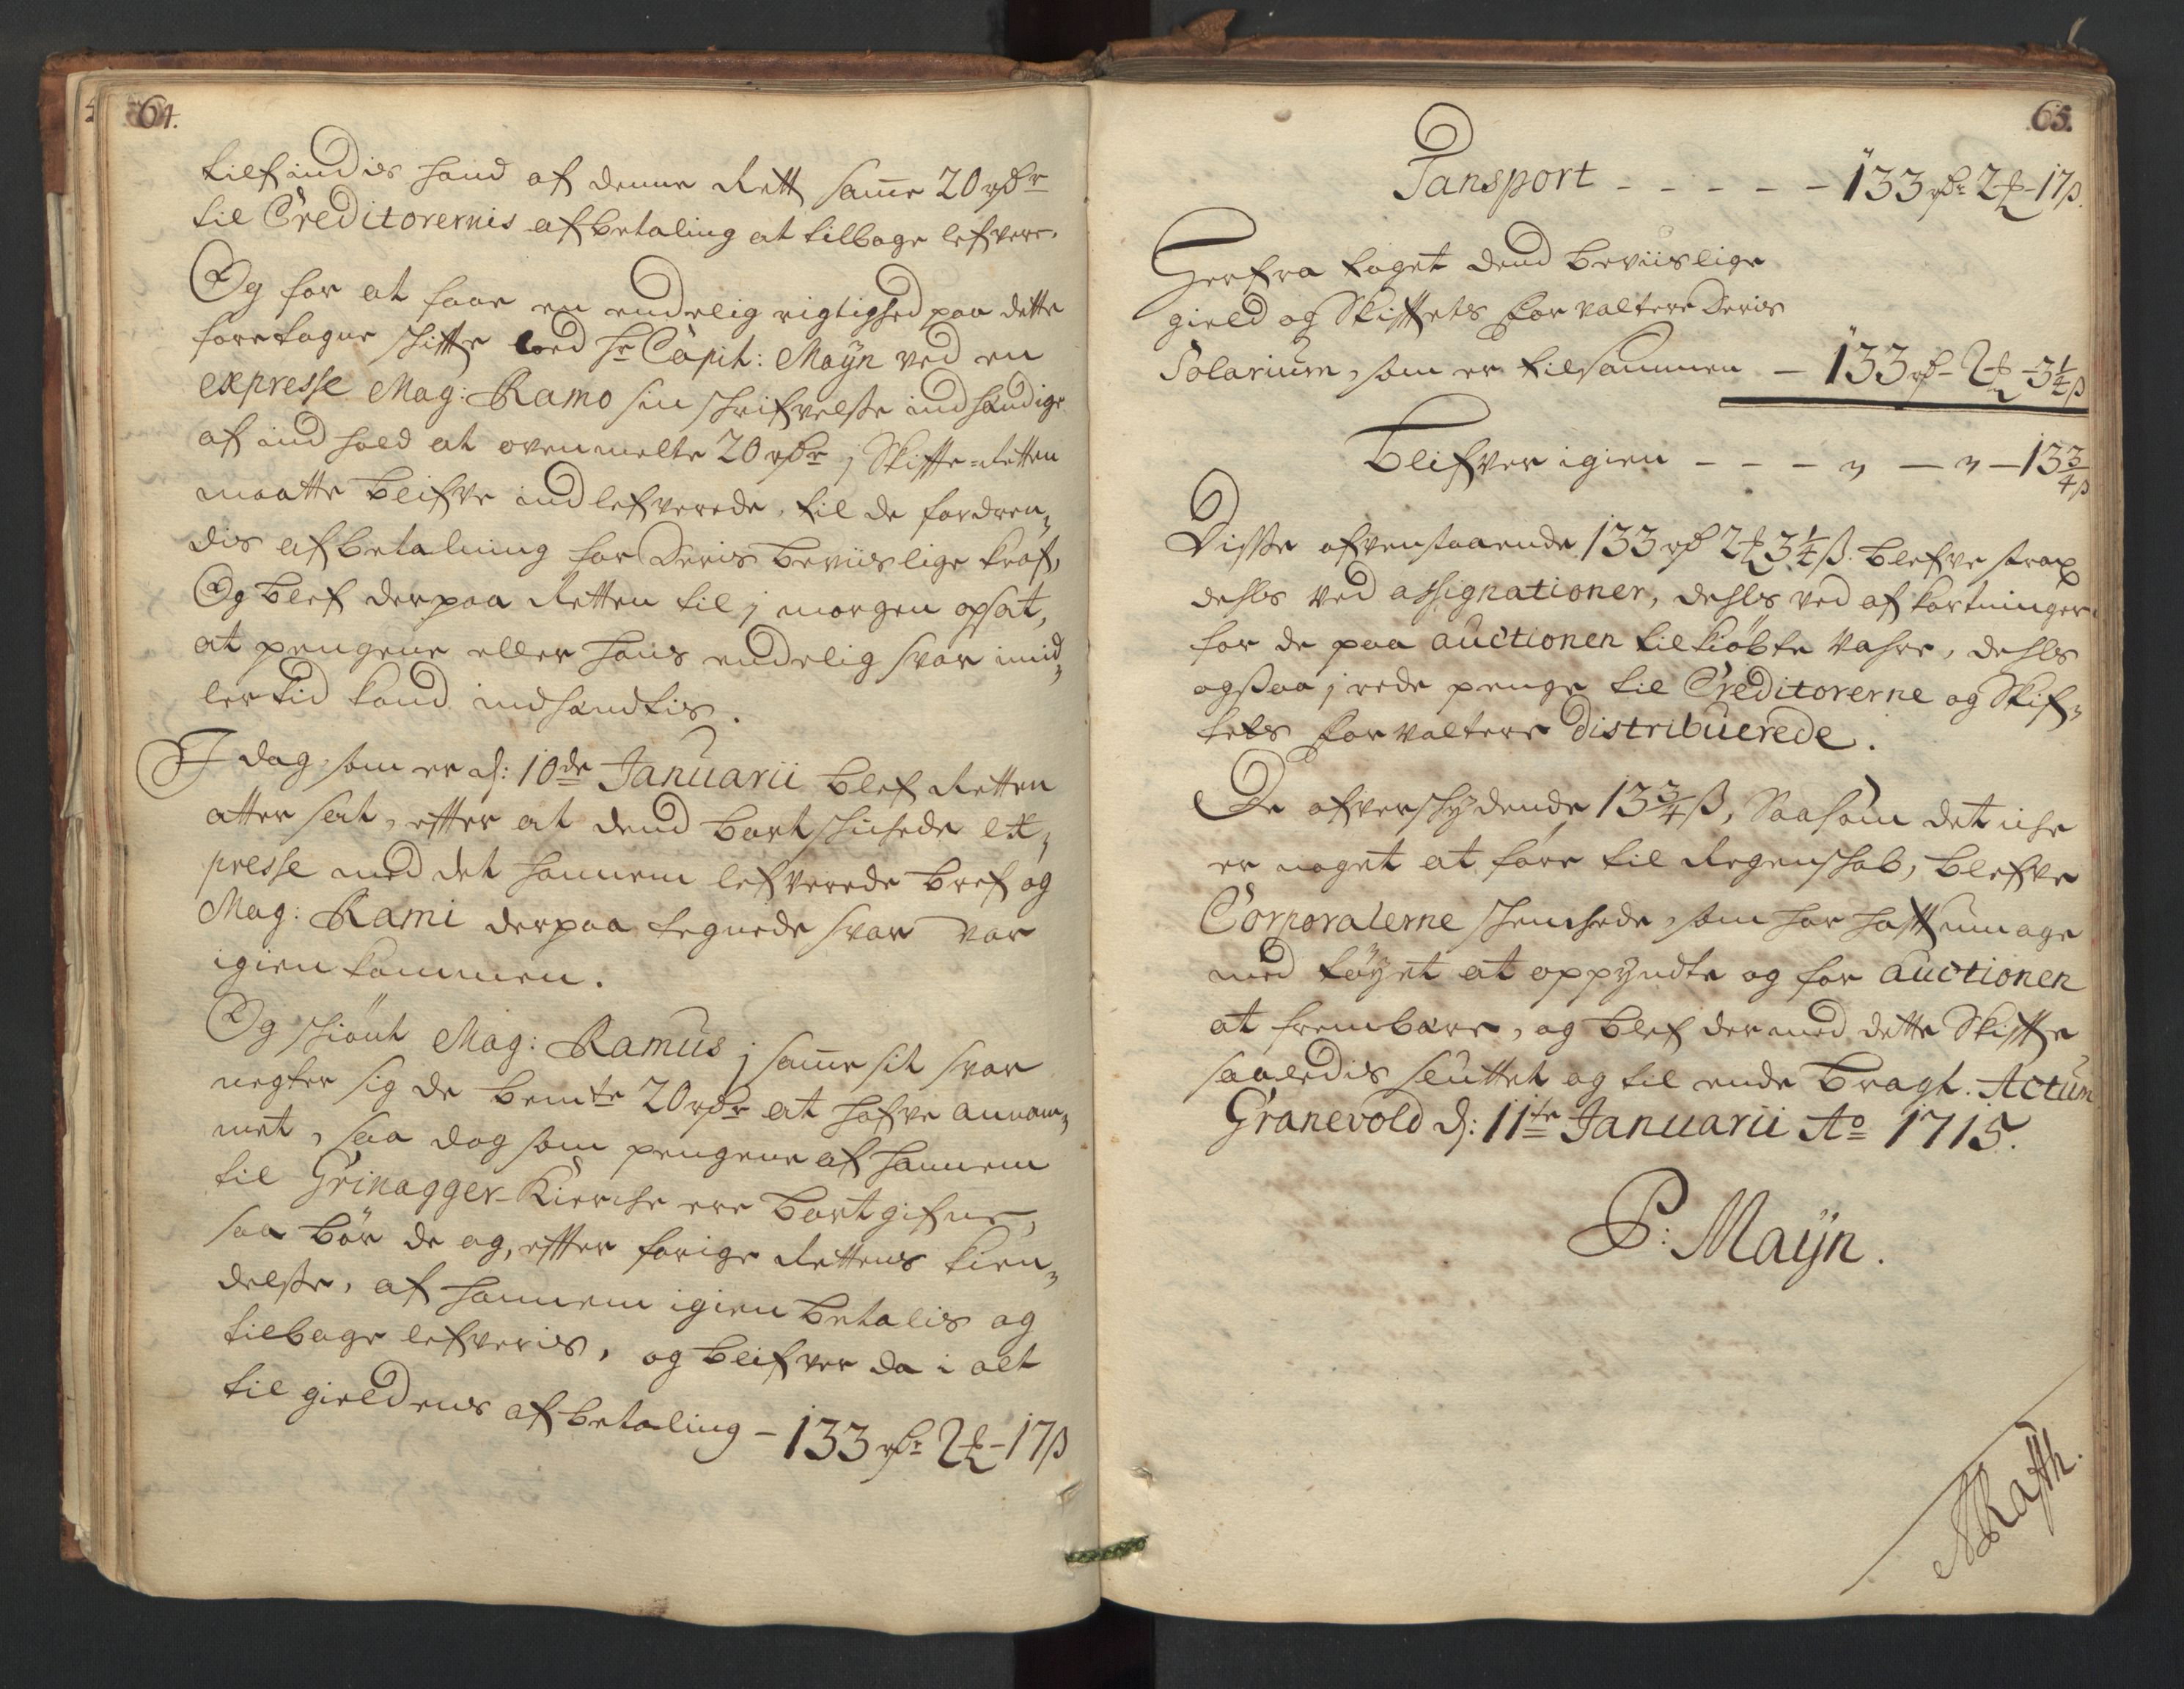 64.
tilfindis hand af denne Rett samme 20 rdr
til Creditorernis afbetaling at tilbage lefvere.
Og for at faae en endelig rigtighed paa dette
foretagne schiffte loed hr Capit: Maÿn ved en
expresse Mag: Ramo sin schrifvelsse indhændige
af indhold at ovenmelte 20 rdr j Skiffte-Retten
maatte blifve indlefverede, til de fordren„
dis afbetalning for Deris beviislige kraf,
Og blef derpaa Retten til j morgen opsat,
at pengene eller hans endelig svar imid„
lertid kand indhændtis.
I dag som er d: 10de Januarii blef Retten
atter sat, effter at dend bortschichede ex„
presse med det hannem lefverede bref og
Mag: Rami derpaa tegnede svar var
igienkommen.
Og schiönt Mag: Ramus j samme sit svar
negter sig de bemte 20 rdr at hafve annam„
met, saa dog som pengene af hannem
til Grinagger Kierche ere bortgifne,
saa bör de og, effter forige Rettens kien„
delsse, af hannem igien betalis og
tilbage lefveris, og blifver da i alt
til gieldens afbetaling – 133 rdr 2 ƶ – 17 ß
65.
Tansport – – – – – 133 rdr 2 ƶ – 17 ß.
Herfra taget dend beviislige
gield og Skifftets Forvaltere Deris
Solarium, som er tilsammen – 133 rd – 2 ƶ – 3 1/4 ß
Blifver igien – – – „ – „ – 13 3/4 ß
Disse ofvenstaaende 133 rd 2 ƶ 3 1/4 ß. blefve strax
dehls ved assignationer, dehls ved afkortninger
for de paa auctionen tilkiöbte Vahre, dehls
ogsaa j rede penge til Creditorerne og Skif„
tets Forvaltere distribuerede.
De ofverschydende 13 3/4 ß, Saasom det iche
er noget at före til Regenschab, blefve
Corporalerne schenchede, som har hafft umage
med töyet at oppyndte og for auctionen
at frembære, og blef dermed dette Skiffte
saaledis sluttet og til ende bragt. Actum
Granevold d: 11te Januarii Ao 1715.
P: Maÿn.